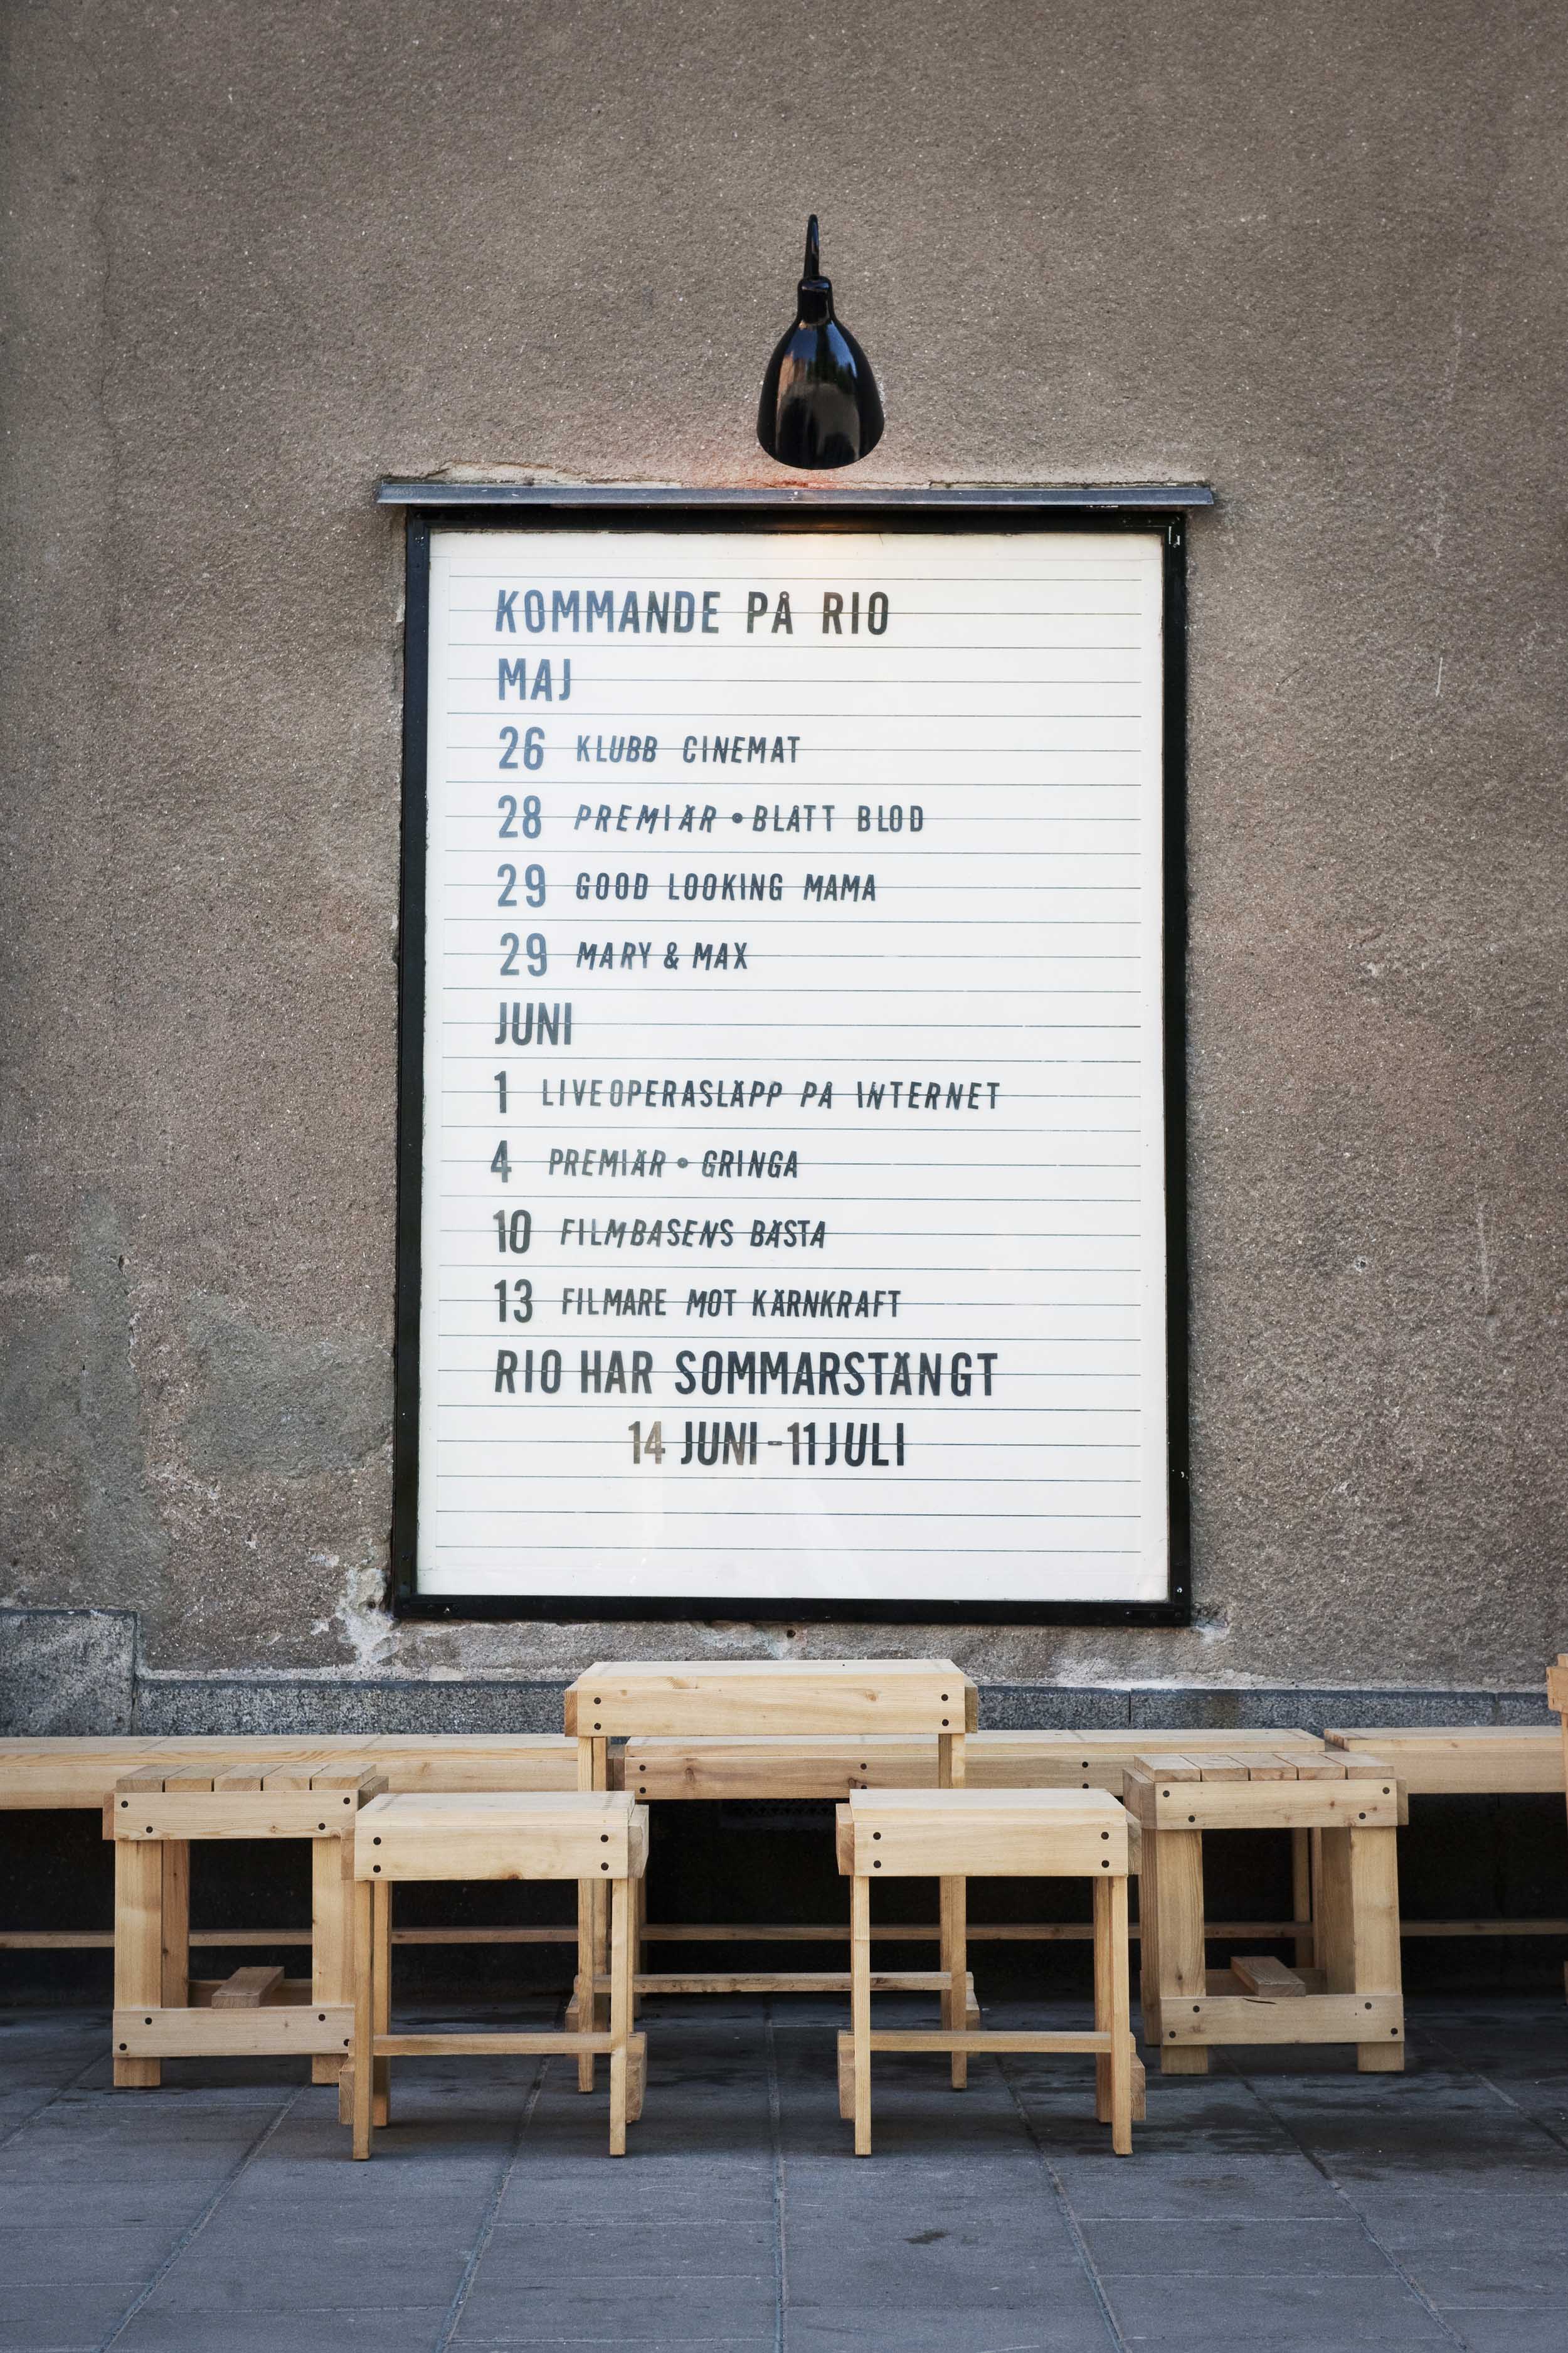 KOMMANDE PÅ RIO
MAJ
26 KLUBB CINEMAT
28 PREMIÄR • BLÅTT BLOD
29 GOOD LOOKING MAMA
29 MARY & MAX
JUNI
1 LIVEOPERASLÄPP PÅ INTERNET
4 PREMIÄR • GRINGA
10 FILMBASENS BÄSTA
13 FILMARE MOT KÄRNKRAFT
RIO HAR SOMMARSTÄNGT
14 JUNI - 11 JULI